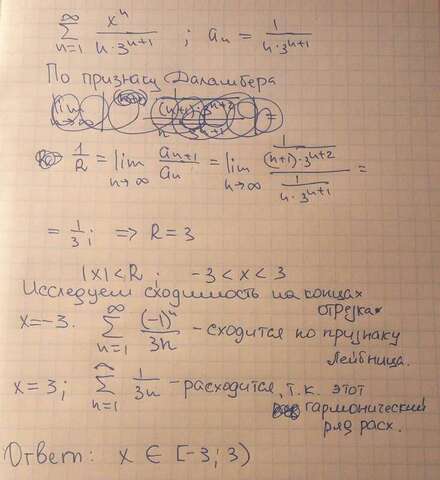 ∑_{n=1}^{∞} x^n / (n·3^{n+1}) ; a_n = 1 / (n·3^{n+1})
По признаку Даламбера
1/R = lim_{n→∞} a_{n+1} / a_n = lim_{n→∞} (1 / ((n+1)·3^{n+2})) / (1 / (n·3^{n+1})) =
= 1/3 ; ⇒ R = 3
|x| < R ; -3 < x < 3
Исследуем сходимость на концах отрезка
x = -3. ∑_{n=1}^{∞} (-1)^n / 3n - сходится по признаку Лейбница.
x = 3; ∑_{n=1}^{∞} 1 / 3n - расходится, т.к. этот
гармонический
ряд расх.
Ответ: x ∈ [-3; 3)